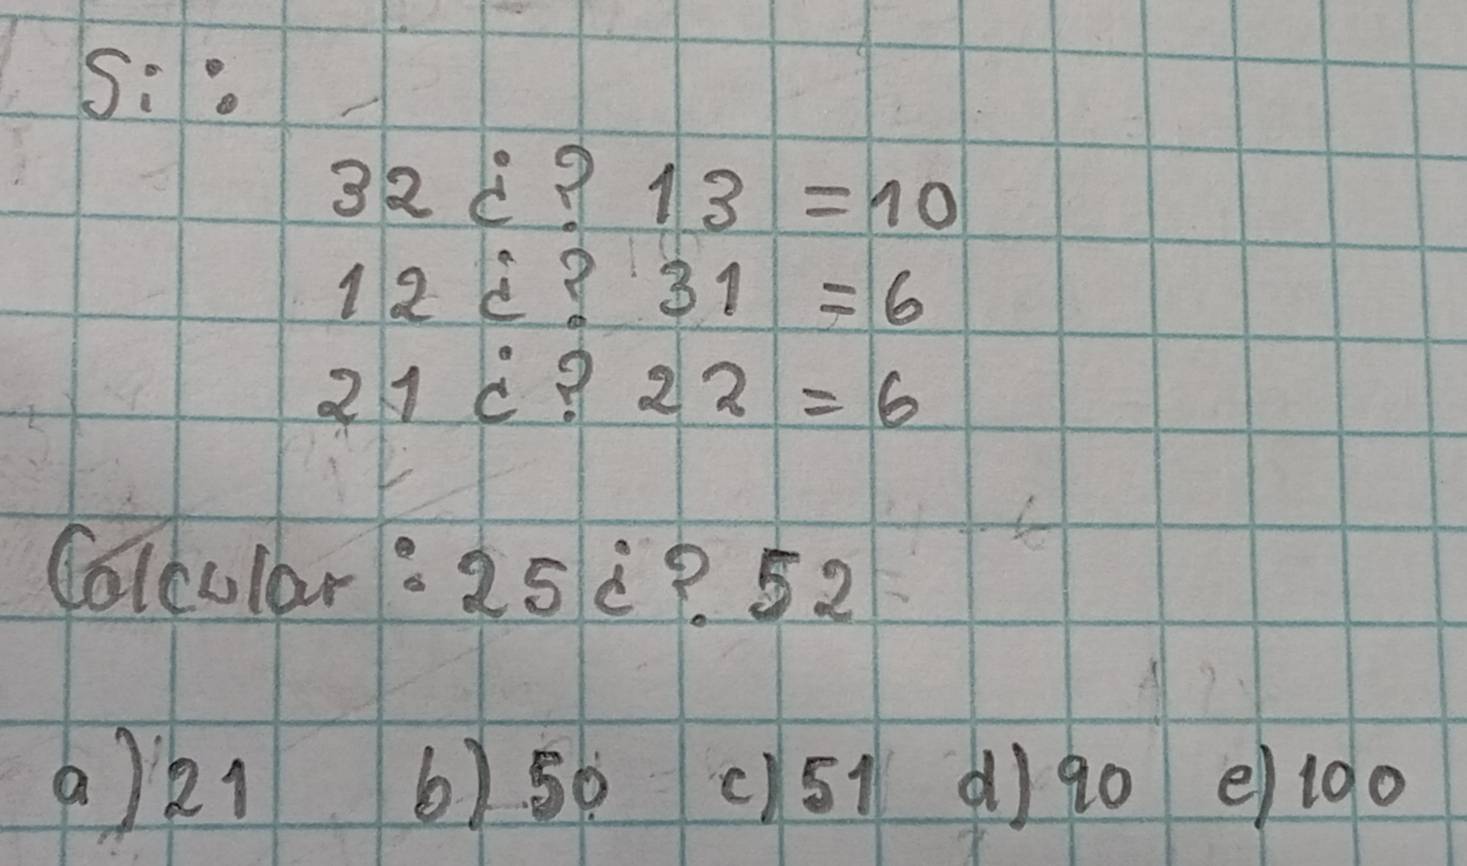 Si:
32 ¿? 13 = 10
12 ¿? 31 = 6
21 ¿? 22 = 6
Calcular: 25 ¿? 52
a) 21 b) 50 c) 51 d) 90 e) 100